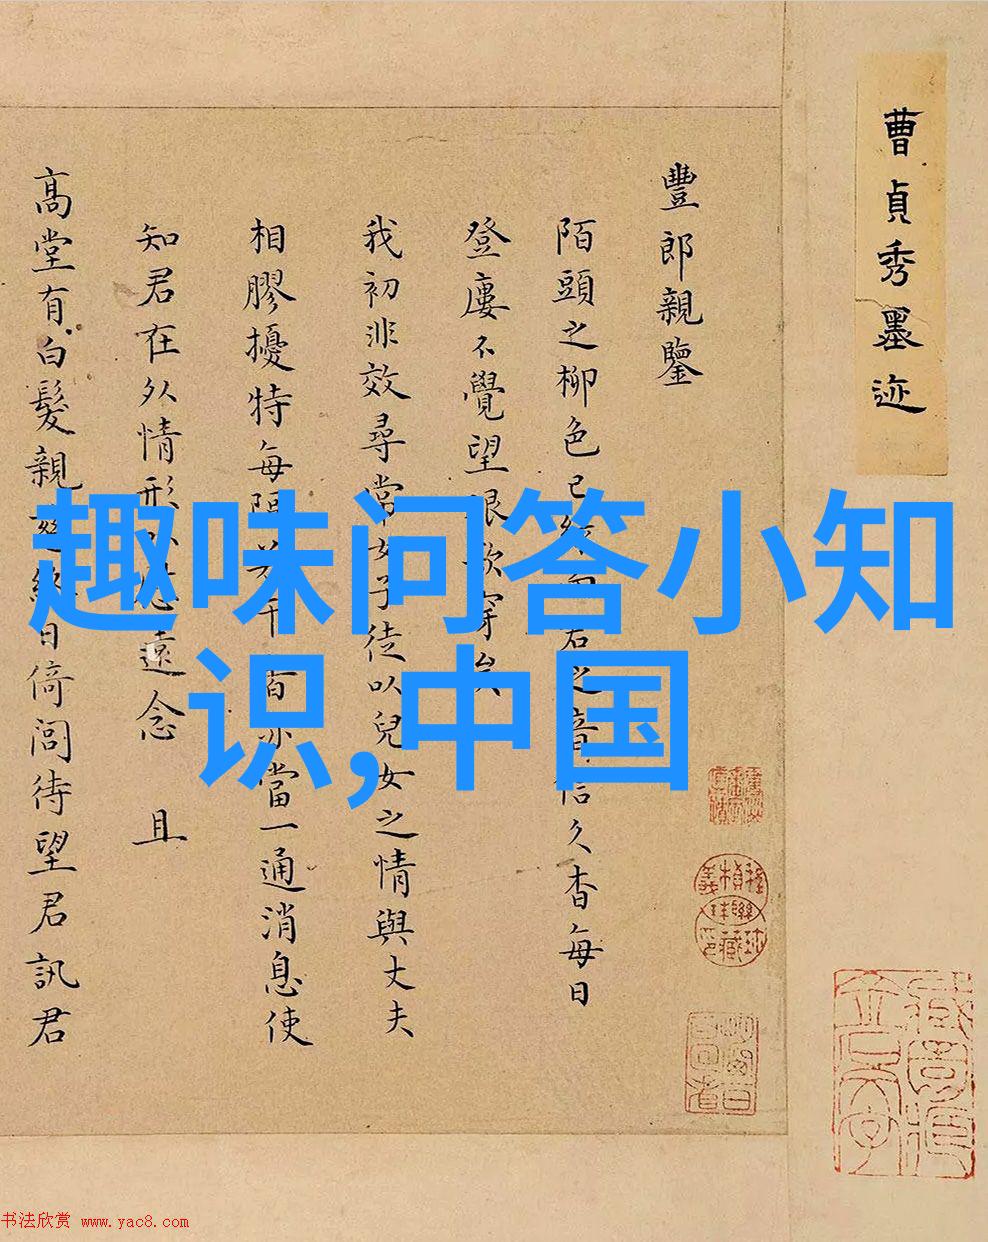 曹貞秀墨迹
豐郎親鑒
陌頭之柳色已
君之音信久杳每日
登廔不覺望眼欲穿矣
我初非效尋常女子徒以兒女之情與丈夫
相膠擾特每隔
當一通消息使
知君在外情形
遠念 且
高堂有白髮親
日倚閭待望君訊君
趣味问答小知
识,中国
书法欣赏 www.yac8.com